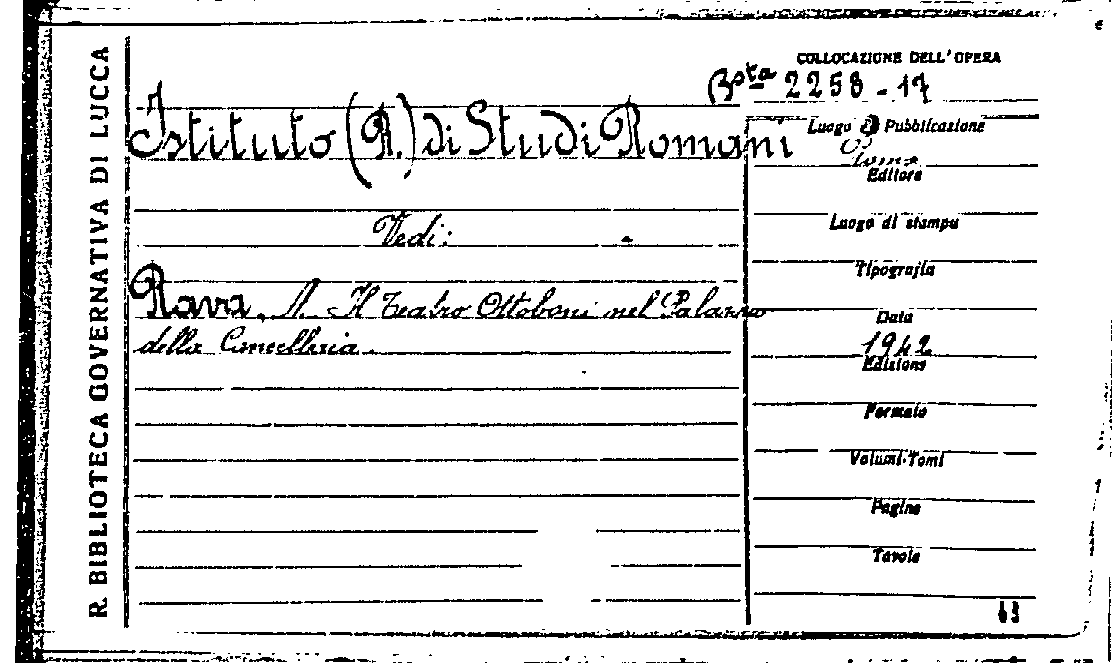 R. BIBLIOTECA GOVERNATIVA DI LUCCA
COLLOCAZIONE DELL'OPERA
Bsta 2258-17
Istituto (R.) di Studi Romani
Vedi:
Rava, A. Il Teatro Ottoboni nel Palazzo
della Cancelleria.
Luogo di Pubblicazione
Roma
Editore
Luogo di stampa
Tipografia
Data
1942
Edizione
Formato
Volumi-Tomi
Pagine
Tavole
43